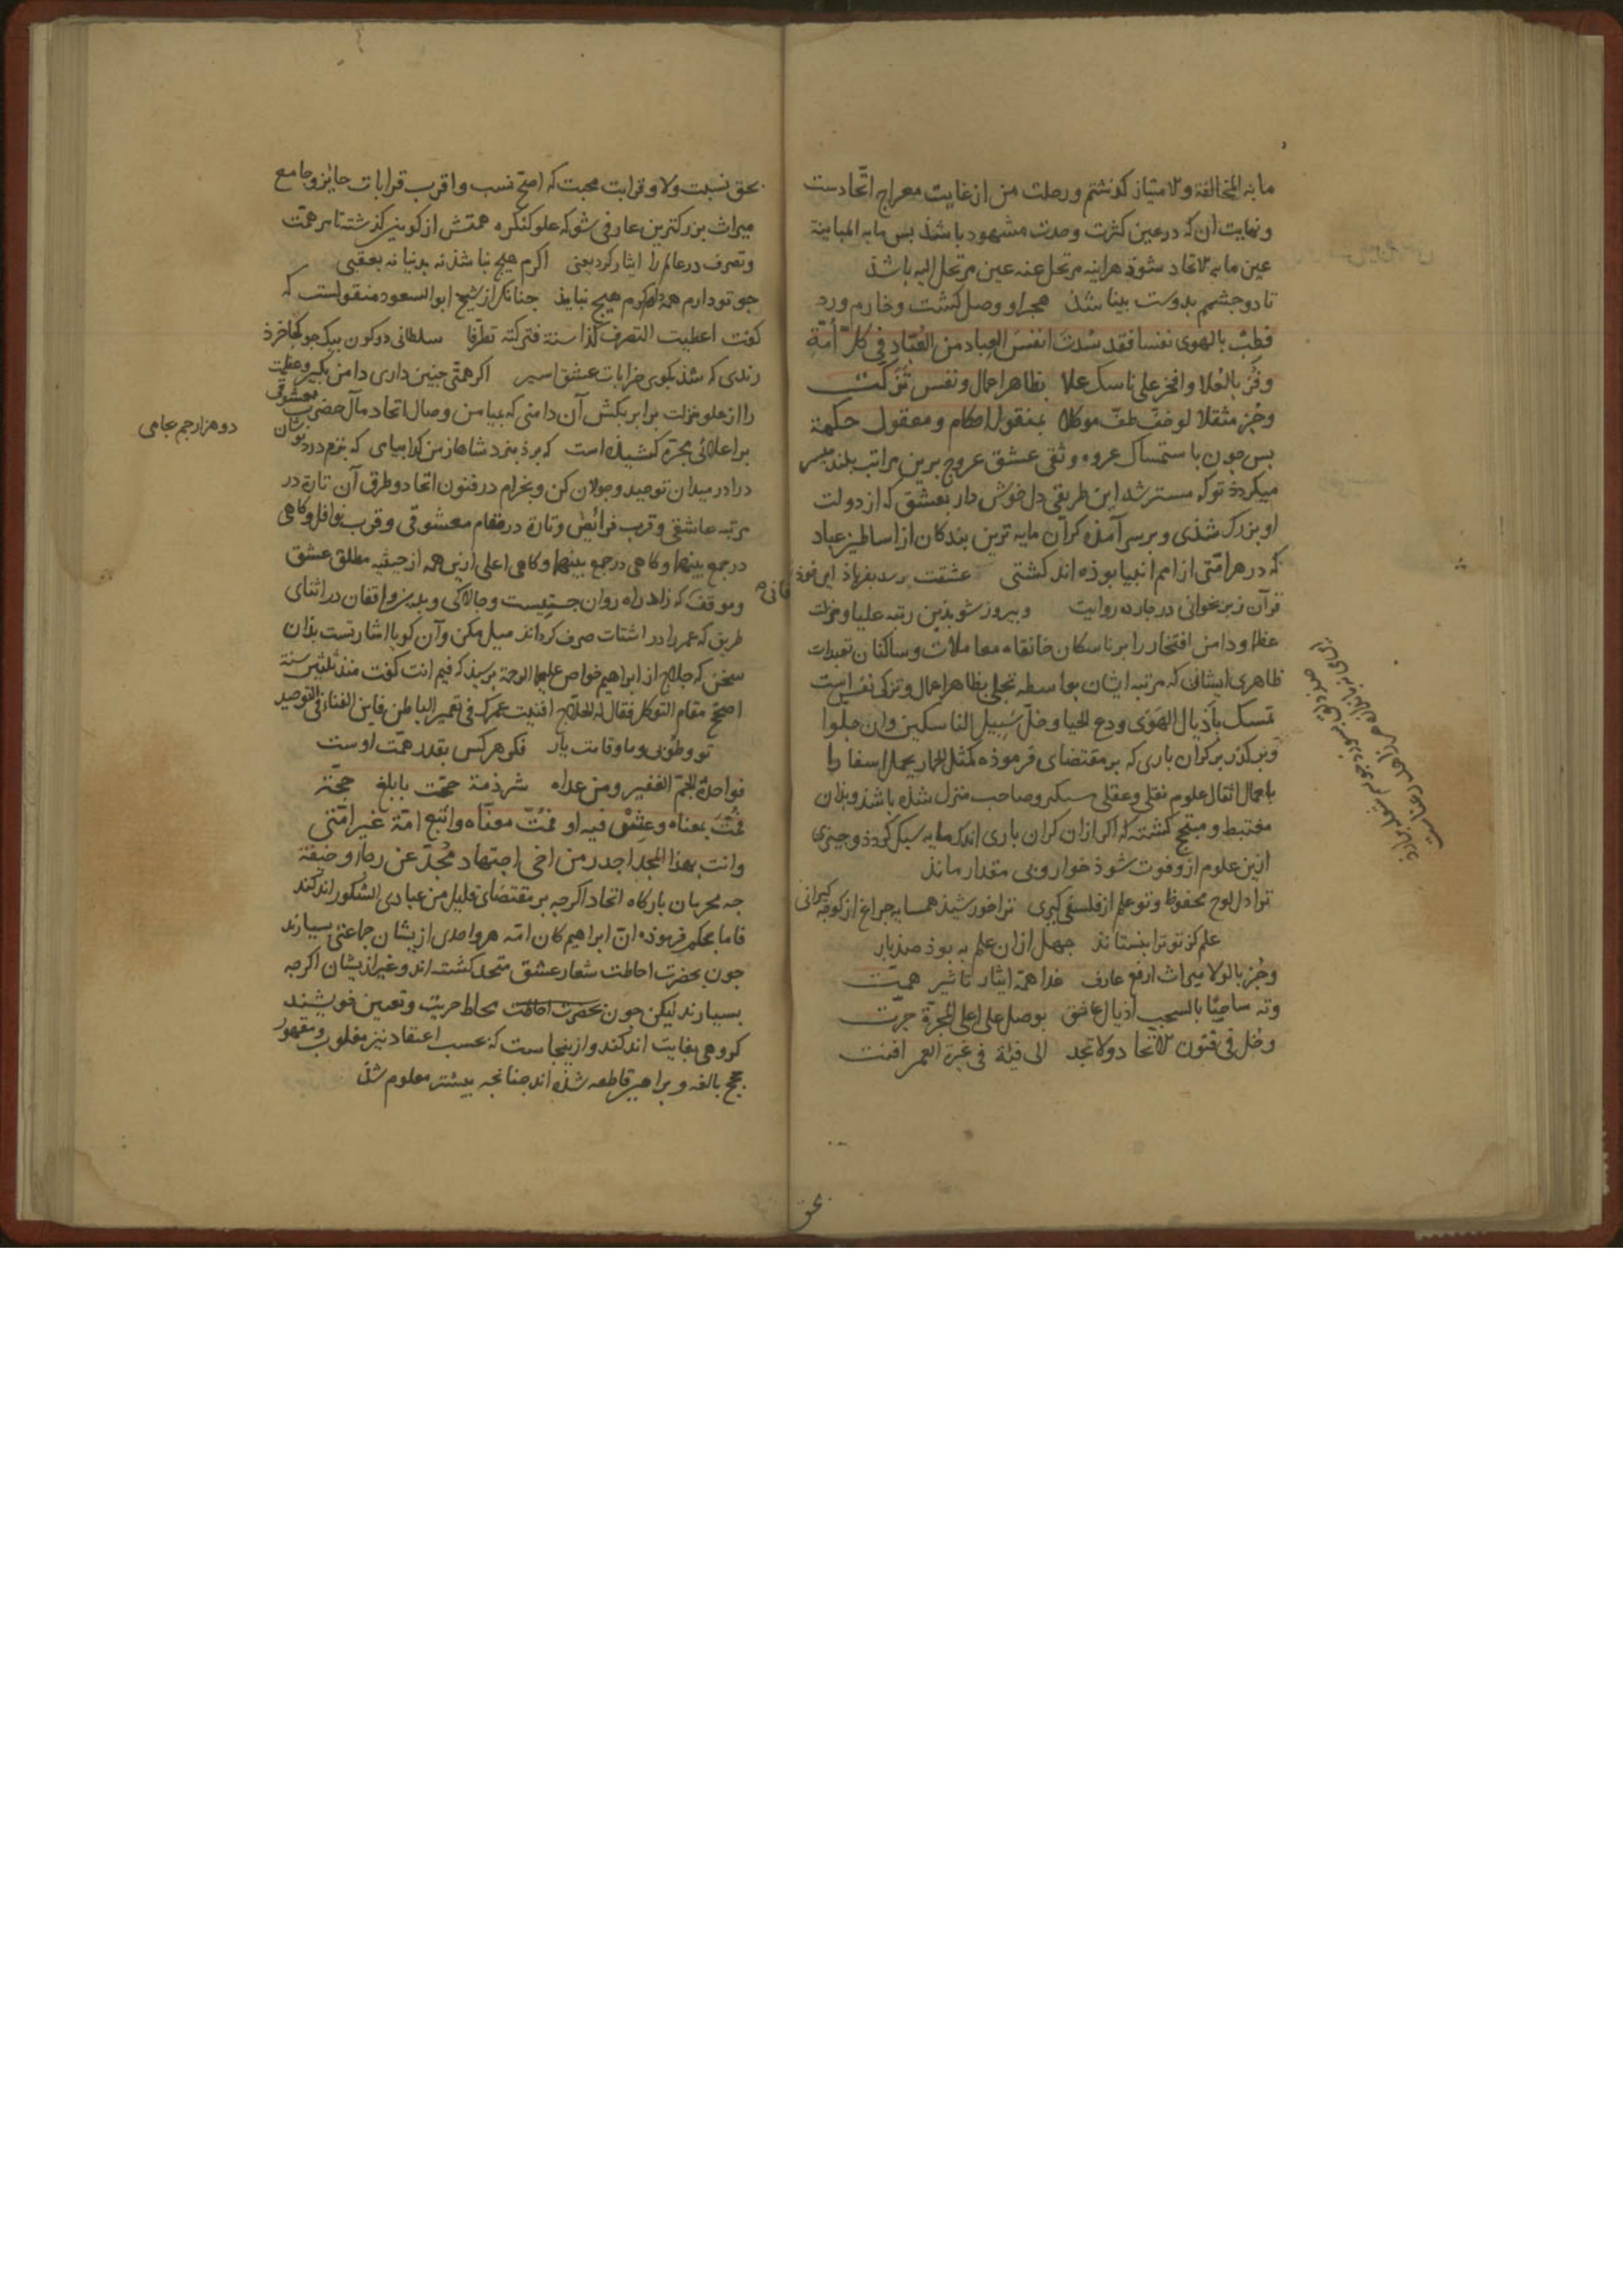 ما به المخالفة والامتیاز کذشتم و رحلت من از غایت معراج اتّحادست
و نهایت آن که در عین کثرت وحدت مشهود باشذ بس ما به المباینة
عین ما به الاتحاد شوذ هراینه مرتحل عنه عین مرتحل الیه باشذ
تا دو جشمم بدوست بینا شذ هجر او وصل کشت و خارم ورد
فطب بالهوی نفسا فقد سدت انفس العباد من العُبّاد فی کل اُمّة
وفُز بالعُلا وافخر علی ناسک علا بظاهر اعمال ونفس تزکّت
وجُز مثقلا لو خفّ طفّ موکلا بمنقول احکام ومعقول حکمة
بس جون باستمساک عروه وثقی عشق عروج برین مراتب بلند میسر
میکردذ توکه مسترشد این طریقی دل خوش دار بعشق که از دولت
او بزرک شذی و بر سر آمذه کرآن مایه ترین بندکان از اساطیر عباد
که در هر امّتی از امم انبیا بوذه اند کشتی عشقت رسد بفریاذ ار خوذ
قرآن زبر بخوانی در جارده روایت و بیروز شو بذین رتبه علیا و منزلت
عظما و دامن افتخار را بر ناسکان خانقاه معاملات و ساکنان تعبدات
ظاهری افشان که مرتبه ایشان بواسطه تحلی بظاهر اعمال و تزکی نفس است
تمسک بأذیال الهَوَی ودع الحیا وخلّ سَبیل الناسکین وان جلوا
و بر کذر بر کران باری که بر مقتضای فرموذه کمثل الحمار یحمل اسفارا
باحمال اثقال علوم نقلی و عقلی سبکبر و صاحب منزل شذه باشذ و بذان
مغتبط و مبتهج کشته که اکر ازان کران باری اندک مایه سبک کردذ و جیزی
ازین علوم ازو فوت شوذ خوار و بی مقدار ماند
ترا دل لوح محفوظ و تو علم از فلسفی کیری ترا خورشیذ همسایه جراغ از کوجه کیرانی
علم کز تو ترا بنستاند جهل ازان علم به بوذ صذ بار
وحُز بالولا میراث ارفع عارف غدا همّه ایثار تاثیر همّت
وته ساحبًا بالسحب اذیال عاشق بوصل علی اعلی المجرّة جرّت
وجُل فی فنون الاتحاد ولا تحد الی فئة فی غیرة العمر افنت
بحق
بحق نسبت ولا و قرابت محبت که اصحّ نسب و اقرب قرابات حایز و جامع
میراث بزرکترین عارفی شو که علو کنکره همّتش از کونین کذشته تا سر همّت
و تصرف در عالم را ایثار کرد یعنی اکرم هیج نباشذ نه بدنیا نه بعقبی
جو تو دارم همه دارم دکرم هیج نبایذ جنانک از شیخ ابو السعود منقولست که
کفت اعطیت التصرف کذا سنة فترکته تظرّفا سلطانی دو کون بیک جو کجا خرذ
رندی که شذ بکوی خرابات عشق اسیر اکر همّتی جنین داری دامن تکبر و عظمت
را از علو منزلت برابر بکش آن دامنی که بمیامن وصال اتحاد مآل حضرت معشوق
بر اعلای مجرّه کشیذه است که برذ بنزد شاهان ز من کدا بیامی که ببزم درد نوشان
دو هزار جم بجامی
درا در میدان توحید و جولان کن و بخرام در فنون اتحاد و طرق آن تارة در
مرتبه عاشقی و قرب فرائض و تارة در مقام معشوقی و قرب نوافل و کاهی
در جمع بینهما و کاهی در جمع بینهما و کاهی اعلی ازین همه از حیثیه مطلق عشق
و موقف که زاد راه روان جستیست و جالاکی و بدیشر واقفان در اثنای
طریق که عمر را در اشتات صرف کرده اند میل مکن و آن کویا اشارتست بذان
سخن که حلاج از ابراهیم خواص علیهما الرحمة برسیذ که فیم انت کفت منذ ثلثین سنة
اصحّح مقام التوکل فقال له الحلاج افنیت عمرک فی تعمیر الباطن فاین الفناء فی التوحید
تو و طوبی و ما و قامت یار فکر هر کس بقدر همّت اوست
فواحدُه الجمّ الغفیر ومن عداه شرذمة حجّت بابلغ حجّة
فمُتّ بمعناه وعِش فیه او فمُت معنّاه واتبع امّة غیر امّتی
وانت بهذا المجد اجدر من اخی اجتهاد مُجدّ عن رجاء وخیفة
جه محرمان بارکاه اتحاد اکرجه بر مقتضای قلیل من عبادی الشکور اندکند
فاما بحکم فرموذه انّ ابراهیم کان امّه هر واحدی ازیشان جماعتی بسیارند
جون بحضرت احاطت شعار عشق متحد کشته اند و غیر ازیشان اکرجه
بسیارند لیکن جون بحضرت احاطت محاط جزئیت و تعین خویشند
کروهی بغایت اندکند و ازینجاست که بحسب اعتقاد نیز مغلوب و مقهور
حجج بالغه و براهین قاطعه شذه اند جنانجه بیشتر معلوم شذ